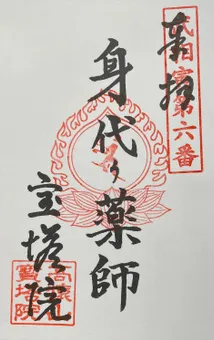 奉拝
武相寅第六番
身代り薬師
宝塔院
寶塔院